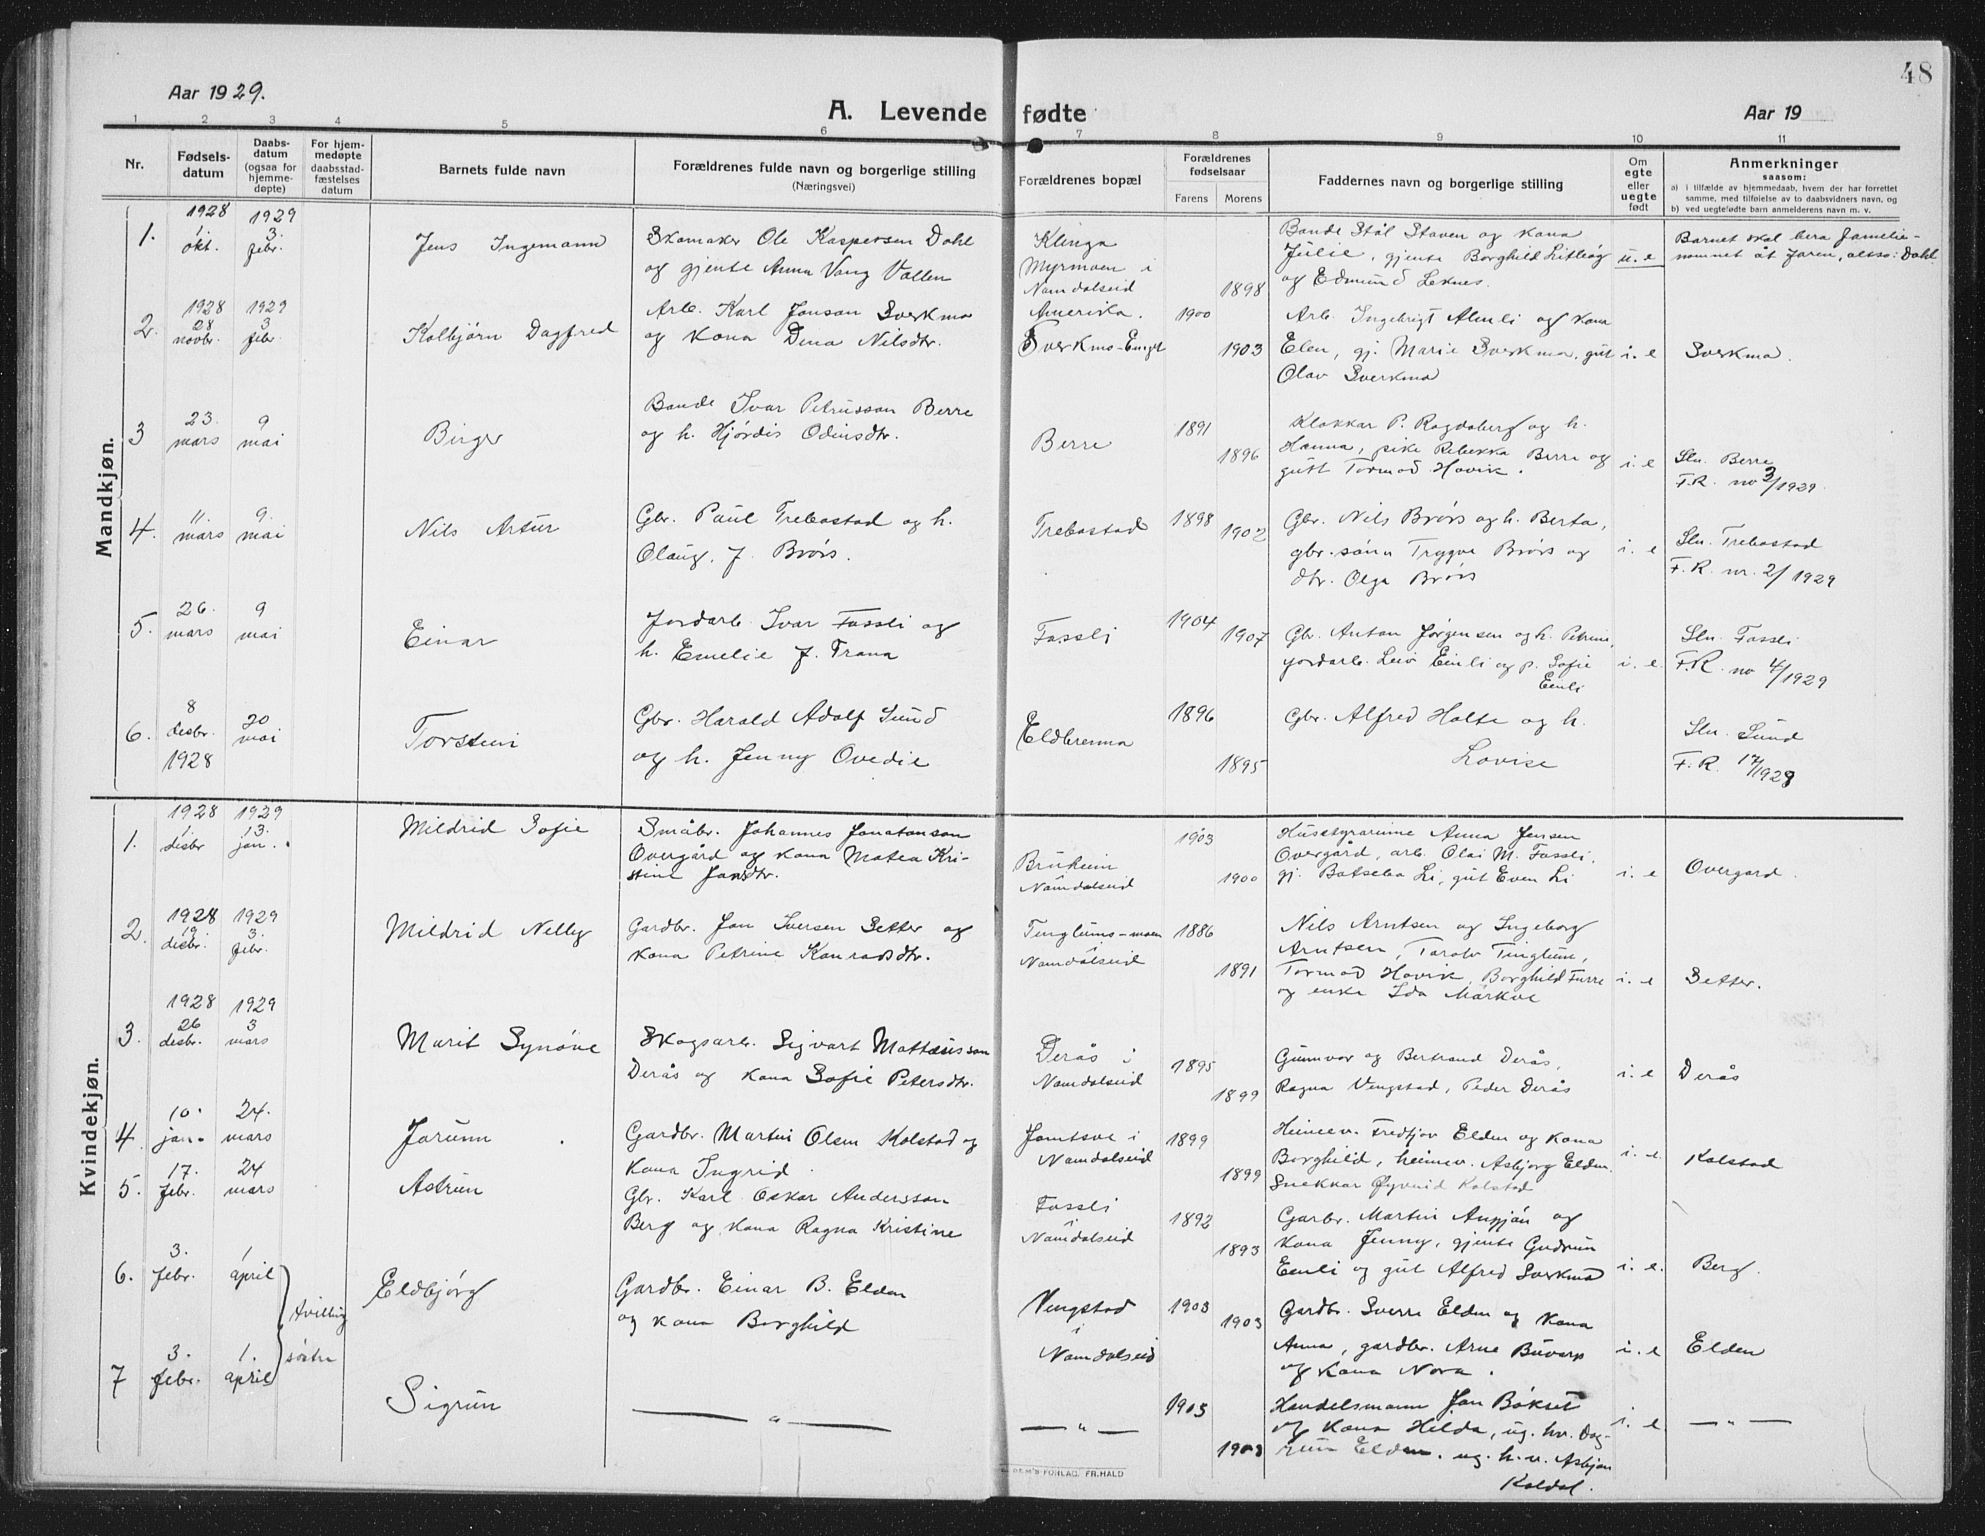 48
Aar 1929.
A. Levende fødte
Aar 19
1 2 3 4 5 6 7 8 9 10 11
Nr.
Fødsels-
datum
Daabs-
datum
(ogsaa for
hjemme-
døpte)
For hjem-
medøpte
daabsstad-
fæstelses
datum
Barnets fulde navn
Forældrenes fulde navn og borgerlige stilling
(Næringsvei)
Forældrenes bopæl
Forældrenes
fødselsaar
Farens Morens
Faddernes navn og borgerlige stilling
Om
egte
eller
uegte
født
Anmerkninger
saasom:
a) i tilfælde av hjemmedaab, hvem der har forrettet
samme, med tilføielse av to daabsvidners navn, og
b) ved uegtefødte barn anmelderens navn m. v.
Mandkjøn.
1.
1928
1.
okt.
1929
3.
febr.
Jens Ingemann
Skomaker Ole Kaspersen Dahl
og gjente Anna Vang Vallen
Klinga
Myrmoen i
Namdalseid
1898
Bonde Stål Staven og kona
Julie, gjente Borghild Litleåg
og Edmund Leknes.
u. e
Barnet skal bera familie-
nomnet åt faren, altso: Dahl
2.
1928
28
novbr.
1929
3
febr.
Kolbjørn Dagfred
Arb. Karl Jonson Sverkmo
og kona Dina Nilsdtr.
Amerika.
Sverkmo-Enget
1900
1903
Arb. Ingebrigt Almli og kona
Elen, gj. Marie Sverkmo, gut
Olav Sverkmo
i. e
Sverkmo.
3
23.
mars
9
mai
Birger
Bonde Ivar Petrusson Berre
og h. Hjørdis Odinsdtr.
Berre
1891
1896
Klokkar P. Rogdaberg og h.
Hanna, pike Rebekka Berre og
gutt Tormod Hovik.
i. e
Sln. Berre
F.R. no 3/1929.
4.
11.
mars
9.
mai
Nils Artur
Gbr. Paul Trebostad og h.
Olaug, f. Brørs.
Trebostad
1898
1902
Gbr. Nils Brørs og h. Berta,
gbr. sønn Trygve Brørs og
dtr. Olga Brørs
i. e
Sln. Trebostad
F.R. nr. 2/1929
5.
26.
mars
9
mai
Einar
Jordarb. Ivar Fossli og
h. Emelie f. Trana
Fossli
1904
1907
Gbr. Anton Jørgensen og h. Petrine,
jordarb. Leiv Einli og p. Sofie
Einli
i. e.
Sln. Fossli
F.R. no 4/1929
6.
8
desbr.
1928
20
mai
Torstein
Gbr. Harald Adolf Sund
og h. Jenny Ovedie
Eldbrenna
1896
1895
Gbr. Alfred Holte og h.
Lovise
Sln. Sund
F.R. 17/1928
Kvindekjøn.
1.
1928
1.
desbr
1929
13.
jan.
Mildrid Sofie
Småbr. Johannes Jonatanson
Overgård og kona Matea Kri-
stine Jonsdtr.
Bruheim
Namdalseid
1903
1900
Husstyrarinne Anna Jensen
Overgård, arb. Olai M. Fossli,
gj. Batseba Li, gut Even Li
i. e
Overgard.
2.
1928
19
desbr.
1929
3.
febr.
Mildrid Nelly
Gardbr. Jon Iversen Setter og
kona Petrine Konradsdtr.
Tinglums-moen
i
Namdalseid
1886
1891
Nils Arntsen og Ingeborg
Arntsen, Torolv Tinglum,
Tormod Hovik, Borghild Furre
og enke Ida Mørkve
i. e
Setter.
3.
1928
26
desbr.
1929
3
mars
Marit Synøve
Skogsarb. Sigvart Mattæusson
Derås og kona Sofie Petersdtr.
Derås i
Namdalseid
1895
1899
Gunnvor og Bertrand Derås,
Ragna Vengstad, Peder Derås
i. e
Derås
4.
10.
jan.
24.
mars
Jorunn
Gardbr. Martin Olsen Kolstad og
kona Ingrid.
Jomtsve i
Namdalseid
1899
1899
Heimev. Fredtjov Elden og kona
Borghild, heimev. Asbjørg Elden.
Snekkar Øyvind Kolstad
i. e.
Kolstad
5.
17.
febr.
24
mars
Astrun
Gbr. Karl Oskar Andersson
Berg og kona Ragna Kristine
Fossli
i
Namdalseid
1892
1893
Garbr. Martin Angjån og
kona Jenny, gjente Gudrun
Einli og gut Alfred Sverkmo
i. e.
Berg.
6.
3.
febr.
1
april
Tvilling
søstre
Eldbjørg
Gardbr. Einar B. Elden
og kona Borghild
Vengstad
i
Namdalseid
1903
1903
Gardbr. Sverre Elden og kona
Anna, gardbr. Arne Buvarp
og kona Nora.
i. e
Elden
7
3.
febr.
1.
april
Sigrun
— " —
— " —
1903
1903
Handelsmann Jon Bøkset
og kona Helda, ug. hv. Dag-
run Elden. ug. h.v. Asbjørn
Koldal.
i. e
— " —
FORLAG, FR. HALD